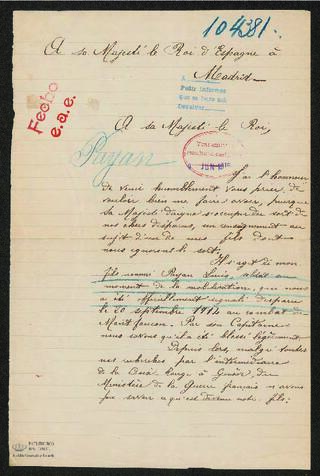 104381.
A sa Majesté le Roi d'Espagne à
Madrid
Pedir informes
Fecho
e.a.e.
A sa Majesté le Roi,
Payan
JUN
J'ai l'honneur
de venir humblement vous prier de
vouloir bien me faire avoir, puisque
Sa Majesté daigne s'occuper du sort de
nos chers disparus, un renseignement au
sujet d'un de mes fils dont
nous ignorons le sort.
Il s'agit de mon
fils nommé Payan Louis, soldat au
moment de la mobilisation, qui nous
a été officiellement signalé disparu
le 20 septembre 1914 au combat de
Montfaucon. Par son Capitaine
nous savons qu'il a été blessé légèrement.
Depuis lors, malgré toutes
nos recherches par l'intermédiaire
de la Croix Rouge à Genève, du
Ministère de la Guerre français n'avons
pu savoir ce qu'est devenu notre fils.
PATRIMONIO
NACIONAL